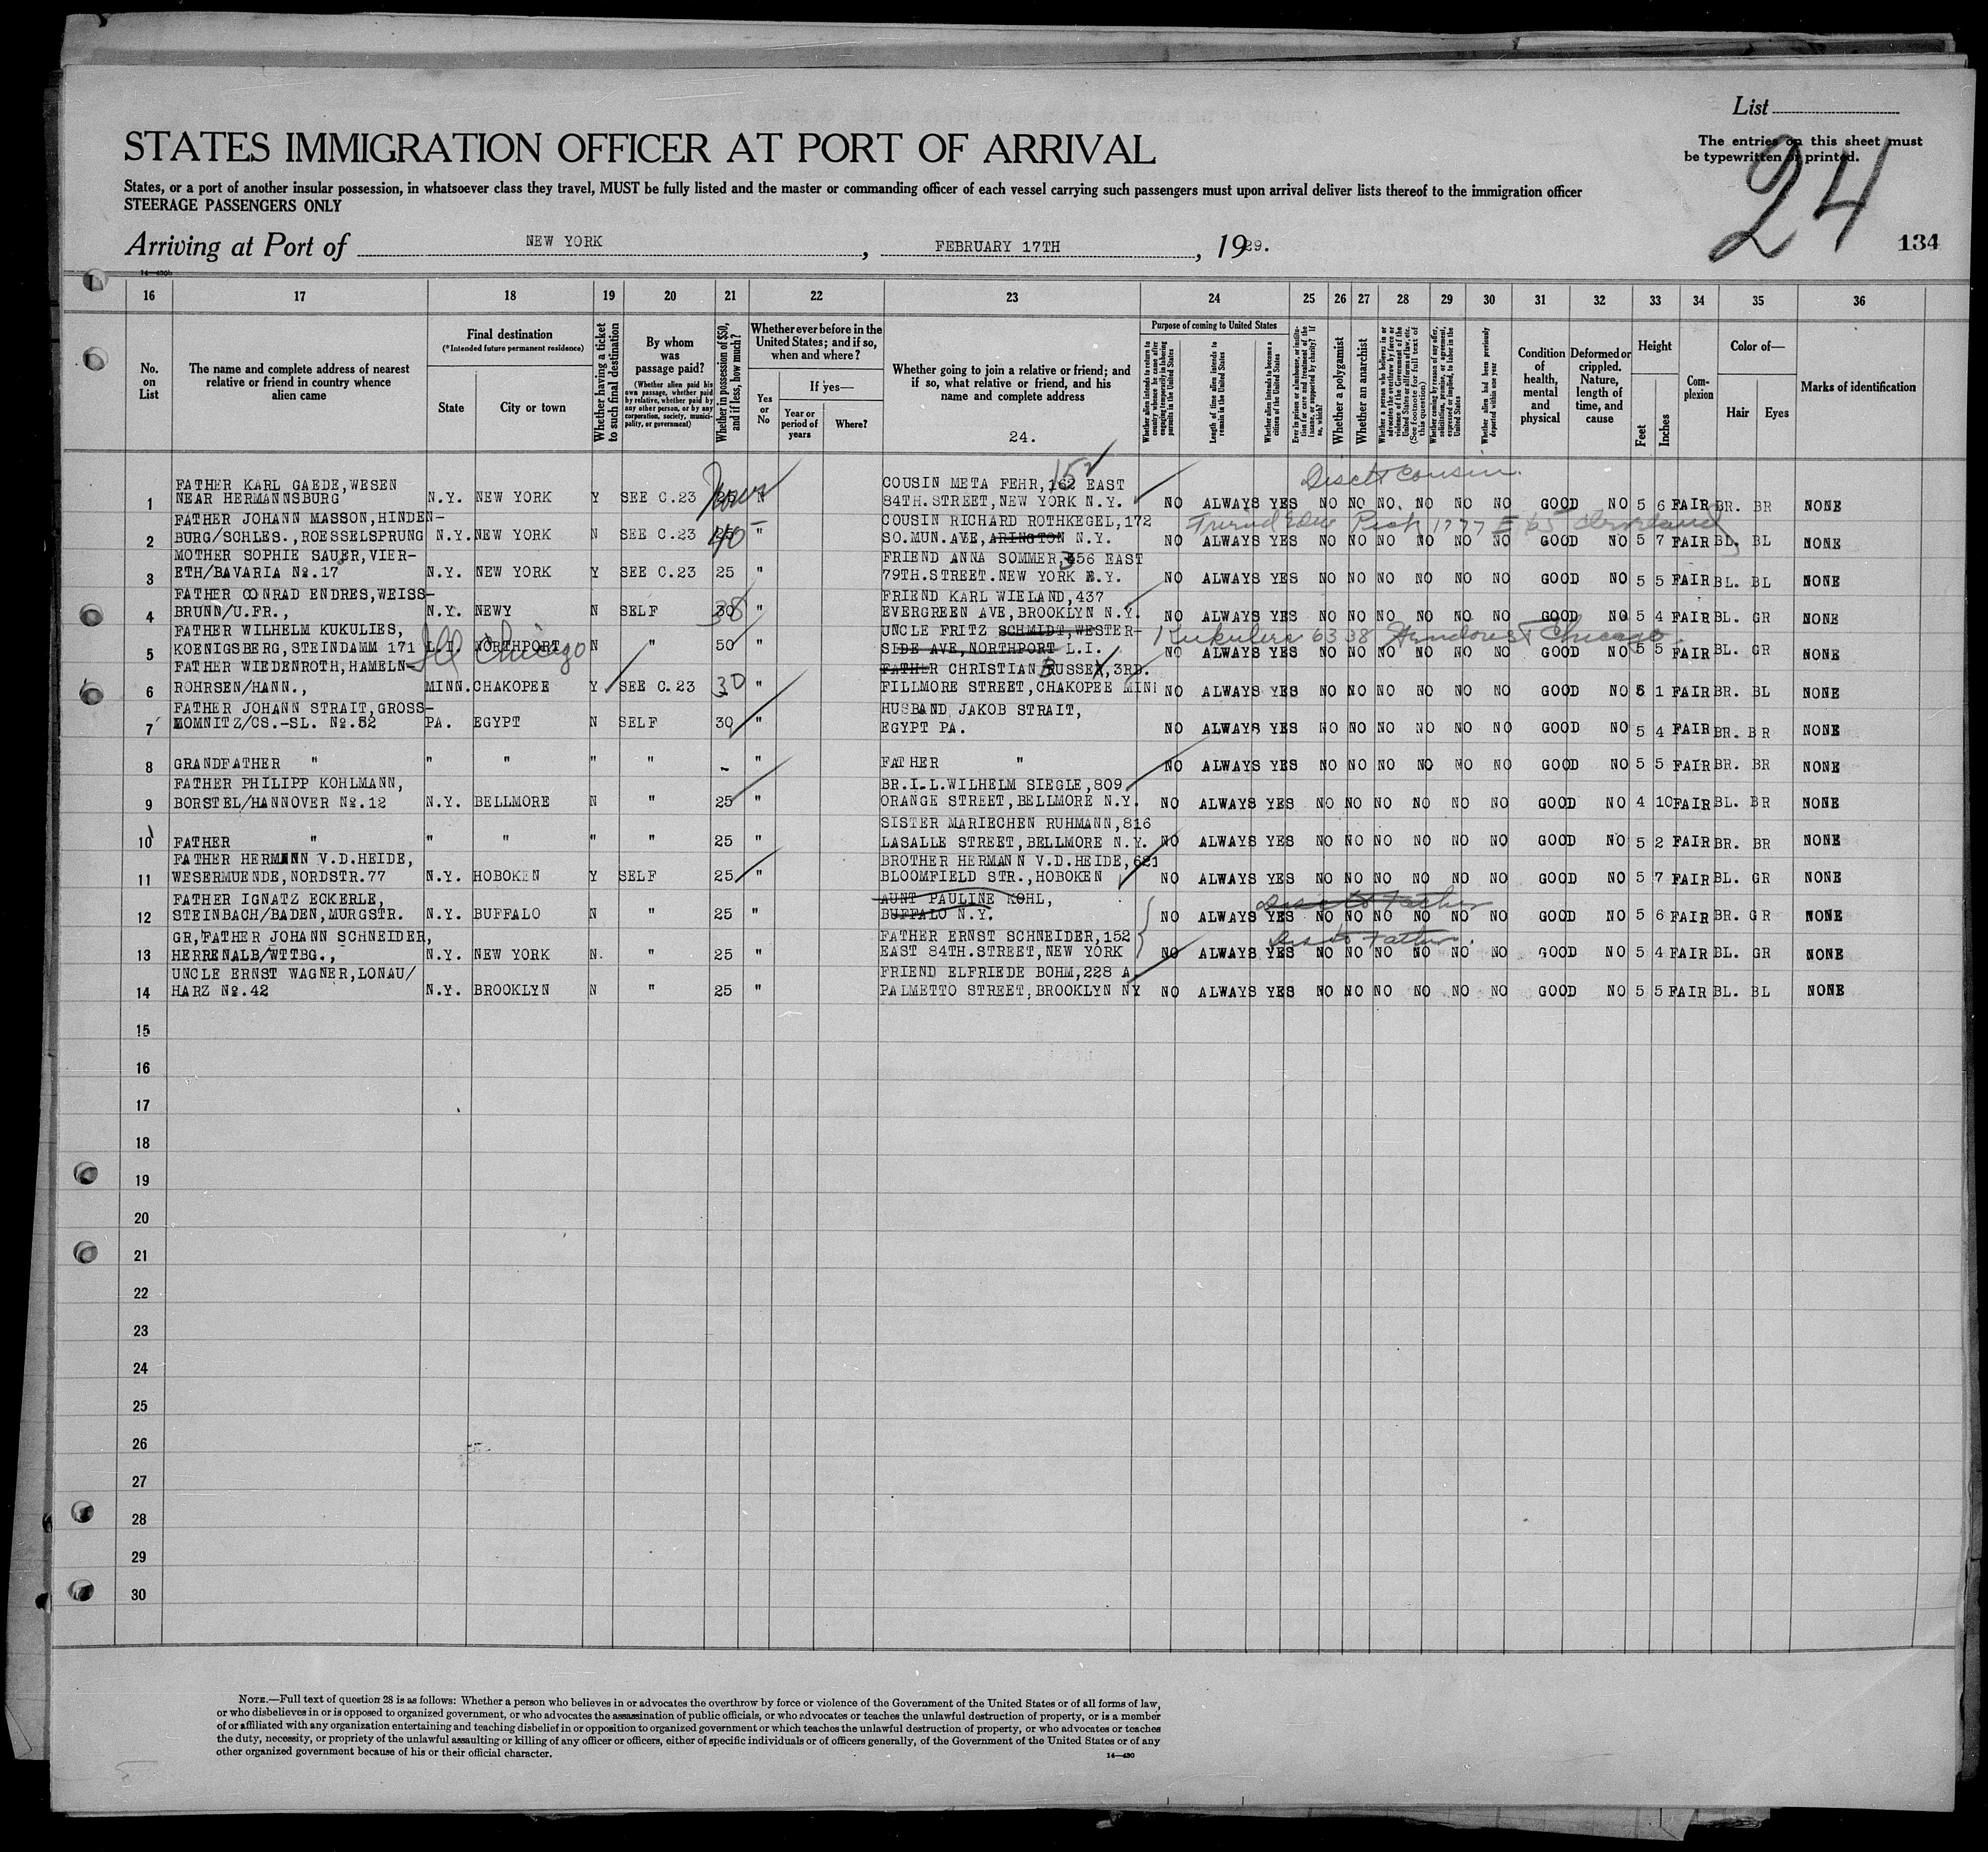 List
The entries on this sheet must
be typewritten or printed.
24
STATES IMMIGRATION OFFICER AT PORT OF ARRIVAL
States, or a port of another insular possession, in whatsoever class they travel, MUST be fully listed and the master or commanding officer of each vessel carrying such passengers must upon arrival deliver lists thereof to the immigration officer
STEERAGE PASSENGERS ONLY
Arriving at Port of NEW YORK, FEBRUARY 17TH, 1929.
134
14—430b
16 17 18 19 20 21 22 23 24 25 26 27 28 29 30 31 32 33 34 35 36
No. on List
The name and complete address of nearest relative or friend in country whence alien came
Final destination
(*Intended future permanent residence)
State
City or town
Whether having a ticket to such final destination
By whom was passage paid?
(Whether alien paid his own passage, whether paid by relative, whether paid by any other person, or by any corporation, society, municipality, or government)
Whether in possession of $50, and if less, how much?
Whether ever before in the United States; and if so, when and where?
Yes or No
If yes—
Year or period of years
Where?
Whether going to join a relative or friend; and if so, what relative or friend, and his name and complete address
24.
Purpose of coming to United States
Whether alien intends to return to country whence he came after engaging temporarily in laboring pursuits in the United States
Length of time alien intends to remain in the United States
Whether alien intends to become a citizen of the United States
Ever in prison or almshouse, or institution for care and treatment of the insane, or supported by charity? If so, which?
Whether a polygamist
Whether an anarchist
Whether a person who believes in or advocates the overthrow by force or violence of the Government of the United States or all forms of law, etc. (See footnote for full text of this question)
Whether coming by reason of any offer, solicitation, promise, or agreement, expressed or implied, to labor in the United States
Whether alien had been previously deported within one year
Condition of health, mental and physical
Deformed or crippled. Nature, length of time, and cause
Height
Feet
Inches
Complexion
Color of—
Hair
Eyes
Marks of identification
152
Disc to Cousin.
FATHER KARL GAEDE,WESEN COUSIN META FEHR,162 EAST
1 NEAR HERMANNSBURG N.Y. NEW YORK Y SEE C.23 25 N 84TH.STREET,NEW YORK N.Y. NO ALWAYS YES NO NO NO. NO NO NO GOOD NO 5 6 FAIR BR. BR NONE
FATHER JOHANN MASSON,HINDEN- COUSIN RICHARD ROTHKEGEL,172
Friend 1777 E 65 Cleveland
2 BURG/SOHLES.,ROESSELSPRUNG N.Y. NEW YORK N SEE C.23 25 40 " SO.MUN.AVE,ARINGTON N.Y. NO ALWAYS YES NO NO NO NO NO NO GOOD NO 5 7 FAIR BL. BL NONE
MOTHER SOPHIE SAUER,VIER- FRIEND ANNA SOMMER,356 EAST
3 ETH/BAVARIA No.17 N.Y. NEW YORK Y SEE C.23 25 " 79TH.STREET.NEW YORK N.Y. NO ALWAYS YES NO NO NO NO NO NO GOOD NO 5 5 FAIR BL. BL NONE
FATHER CONRAD ENDRES,WEISS- FRIEND KARL WIELAND,437
4 BRUNN/U.FR., N.Y. NEWY N SELF 30 38 " EVERGREEN AVE,BROOKLYN N.Y. NO ALWAYS YES NO NO NO NO NO NO GOOD NO 5 4 FAIR BL. GR NONE
FATHER WILHELM KUKULIES, UNCLE FRITZ SCHMIDT,WESTER-
Ill Chicago
Kukulies 6338 Chicago
5 KOENIGSBERG,STEINDAMM 171 L.I. NORTHPORT N " 50 " SIDE AVE,NORTHPORT L.I. NO ALWAYS YES NO NO NO NO NO NO GOOD NO 5 5 FAIR BL. GR NONE
FATHER WIEDENROTH,HAMELN- FATHER CHRISTIAN BUSSE,3RD.
6 ROHRSEN/HANN., MINN. CHAKOPEE Y SEE C.23 30 " FILLMORE STREET,CHAKOPEE MINN NO ALWAYS YES NO NO NO NO NO NO GOOD NO 5 1 FAIR BR. BL NONE
FATHER JOHANN STRAIT,GROSS- HUSBAND JAKOB STRAIT,
7 LOMNITZ/CS.-SL. No.52 PA. EGYPT N SELF 30 " EGYPT PA. NO ALWAYS YES NO NO NO NO NO NO GOOD NO 5 4 FAIR BR. BR NONE
8 GRANDFATHER " " " " " - " FATHER " NO ALWAYS YES NO NO NO NO NO NO GOOD NO 5 5 FAIR BR. BR NONE
FATHER PHILIPP KOHLMANN, BR.I.L.WILHELM SIEGLE,809
9 BORSTEL/HANNOVER No.12 N.Y. BELLMORE N " 25 " ORANGE STREET,BELLMORE N.Y. NO ALWAYS YES NO NO NO NO NO NO GOOD NO 4 10 FAIR BL. BR NONE
SISTER MARIECHEN RUHMANN,816
10 FATHER " " " " " 25 " LASALLE STREET,BELLMORE N.Y. NO ALWAYS YES NO NO NO NO NO NO GOOD NO 5 2 FAIR BR. BR NONE
FATHER HERMANN V.D.HEIDE, BROTHER HERMANN V.D.HEIDE,621
11 WESERMUENDE,NORDSTR.77 N.Y. HOBOKEN Y SELF 25 " BLOOMFIELD STR.,HOBOKEN NO ALWAYS YES NO NO NO NO NO NO GOOD NO 5 7 FAIR BL. GR NONE
FATHER IGNATZ ECKERLE, AUNT PAULINE KOHL,
Disc to Father
12 STEINBACH/BADEN,MURGSTR. N.Y. BUFFALO N " 25 " BUFFALO N.Y. NO ALWAYS YES NO NO NO NO NO NO GOOD NO 5 6 FAIR BR. GR NONE
GR,FATHER JOHANN SCHNEIDER, FATHER ERNST SCHNEIDER,152
Dis to Father.
13 HERRENALB/WTTBG., N.Y. NEW YORK N. " 25 " EAST 84TH.STREET,NEW YORK NO ALWAYS YES NO NO NO NO NO NO GOOD NO 5 4 FAIR BL. GR NONE
UNCLE ERNST WAGNER,LONAU/ FRIEND ELFRIEDE BOHM,228 A.
14 HARZ No.42 N.Y. BROOKLYN N " 25 " PALMETTO STREET,BROOKLYN NY NO ALWAYS YES NO NO NO NO NO NO GOOD NO 5 5 FAIR BL. BL NONE
15
16
17
18
19
20
21
22
23
24
25
26
27
28
29
30
NOTE.—Full text of question 28 is as follows: Whether a person who believes in or advocates the overthrow by force or violence of the Government of the United States or of all forms of law,
or who disbelieves in or is opposed to organized government, or who advocates the assassination of public officials, or who advocates or teaches the unlawful destruction of property, or is a member
of or affiliated with any organization entertaining and teaching disbelief in or opposition to organized government or which teaches the unlawful destruction of property, or who advocates or teaches
the duty, necessity, or propriety of the unlawful assaulting or killing of any officer or officers, either of specific individuals or of officers generally, of the Government of the United States or of any
other organized government because of his or their official character.
14—430